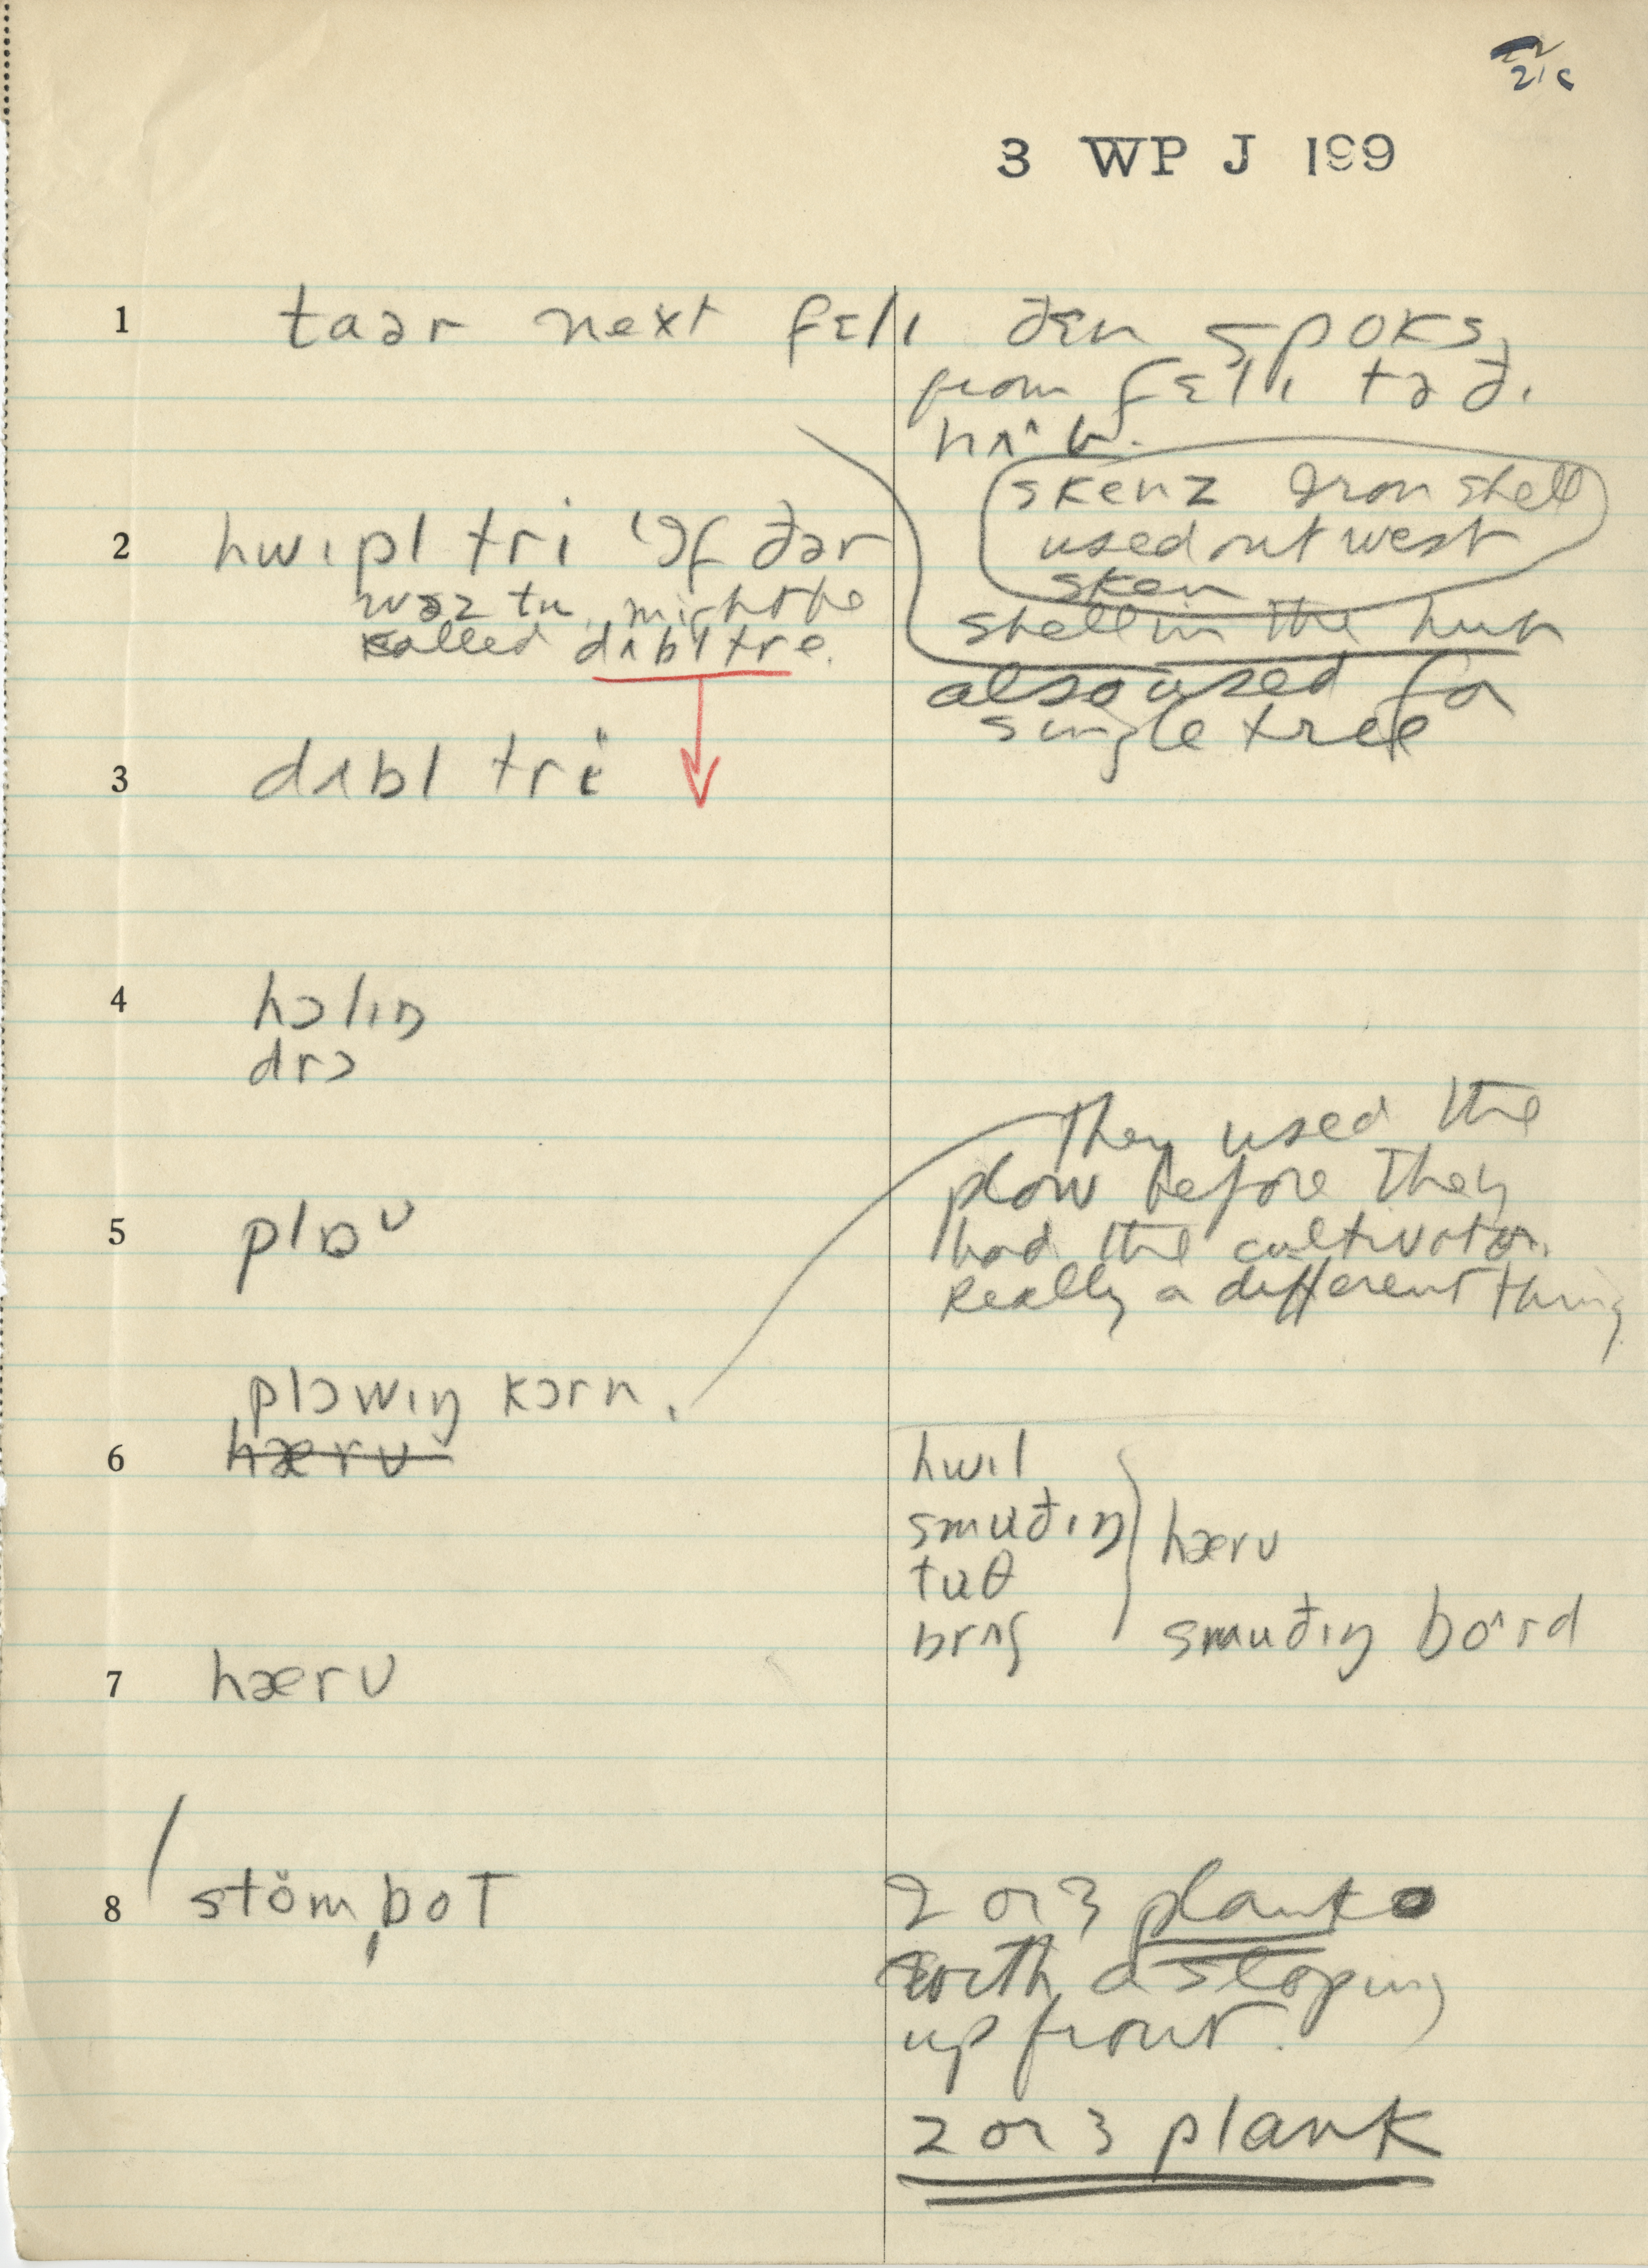 3 WP J 199
1 taər next fɛlɪ ðɛn spoks,
from fɛlɪ tə ðɪ
hʌ^b.
skenz Iron shell
used out west
sken
2 hwɪpl tri ɪf ðər
wəz tu, might be
called dʌbl tre.
shell in the hub
also used for
single tree
3 dʌbl tri
4 hɔlɪŋ
drɔ
They used the
plow before they
5 plɒᴜ
had the cultivator.
Really a different thing
plɔwɪŋ kɔrn.
6 hærʊ
hwɪl
smuðɪŋ
tuθ
brʌʃ
hærʊ
smuðɪŋ bo^rd
7 hærʊ
8 stöm,boT
2 or 3 plank
with a sloping
up front.
2 or 3 plank